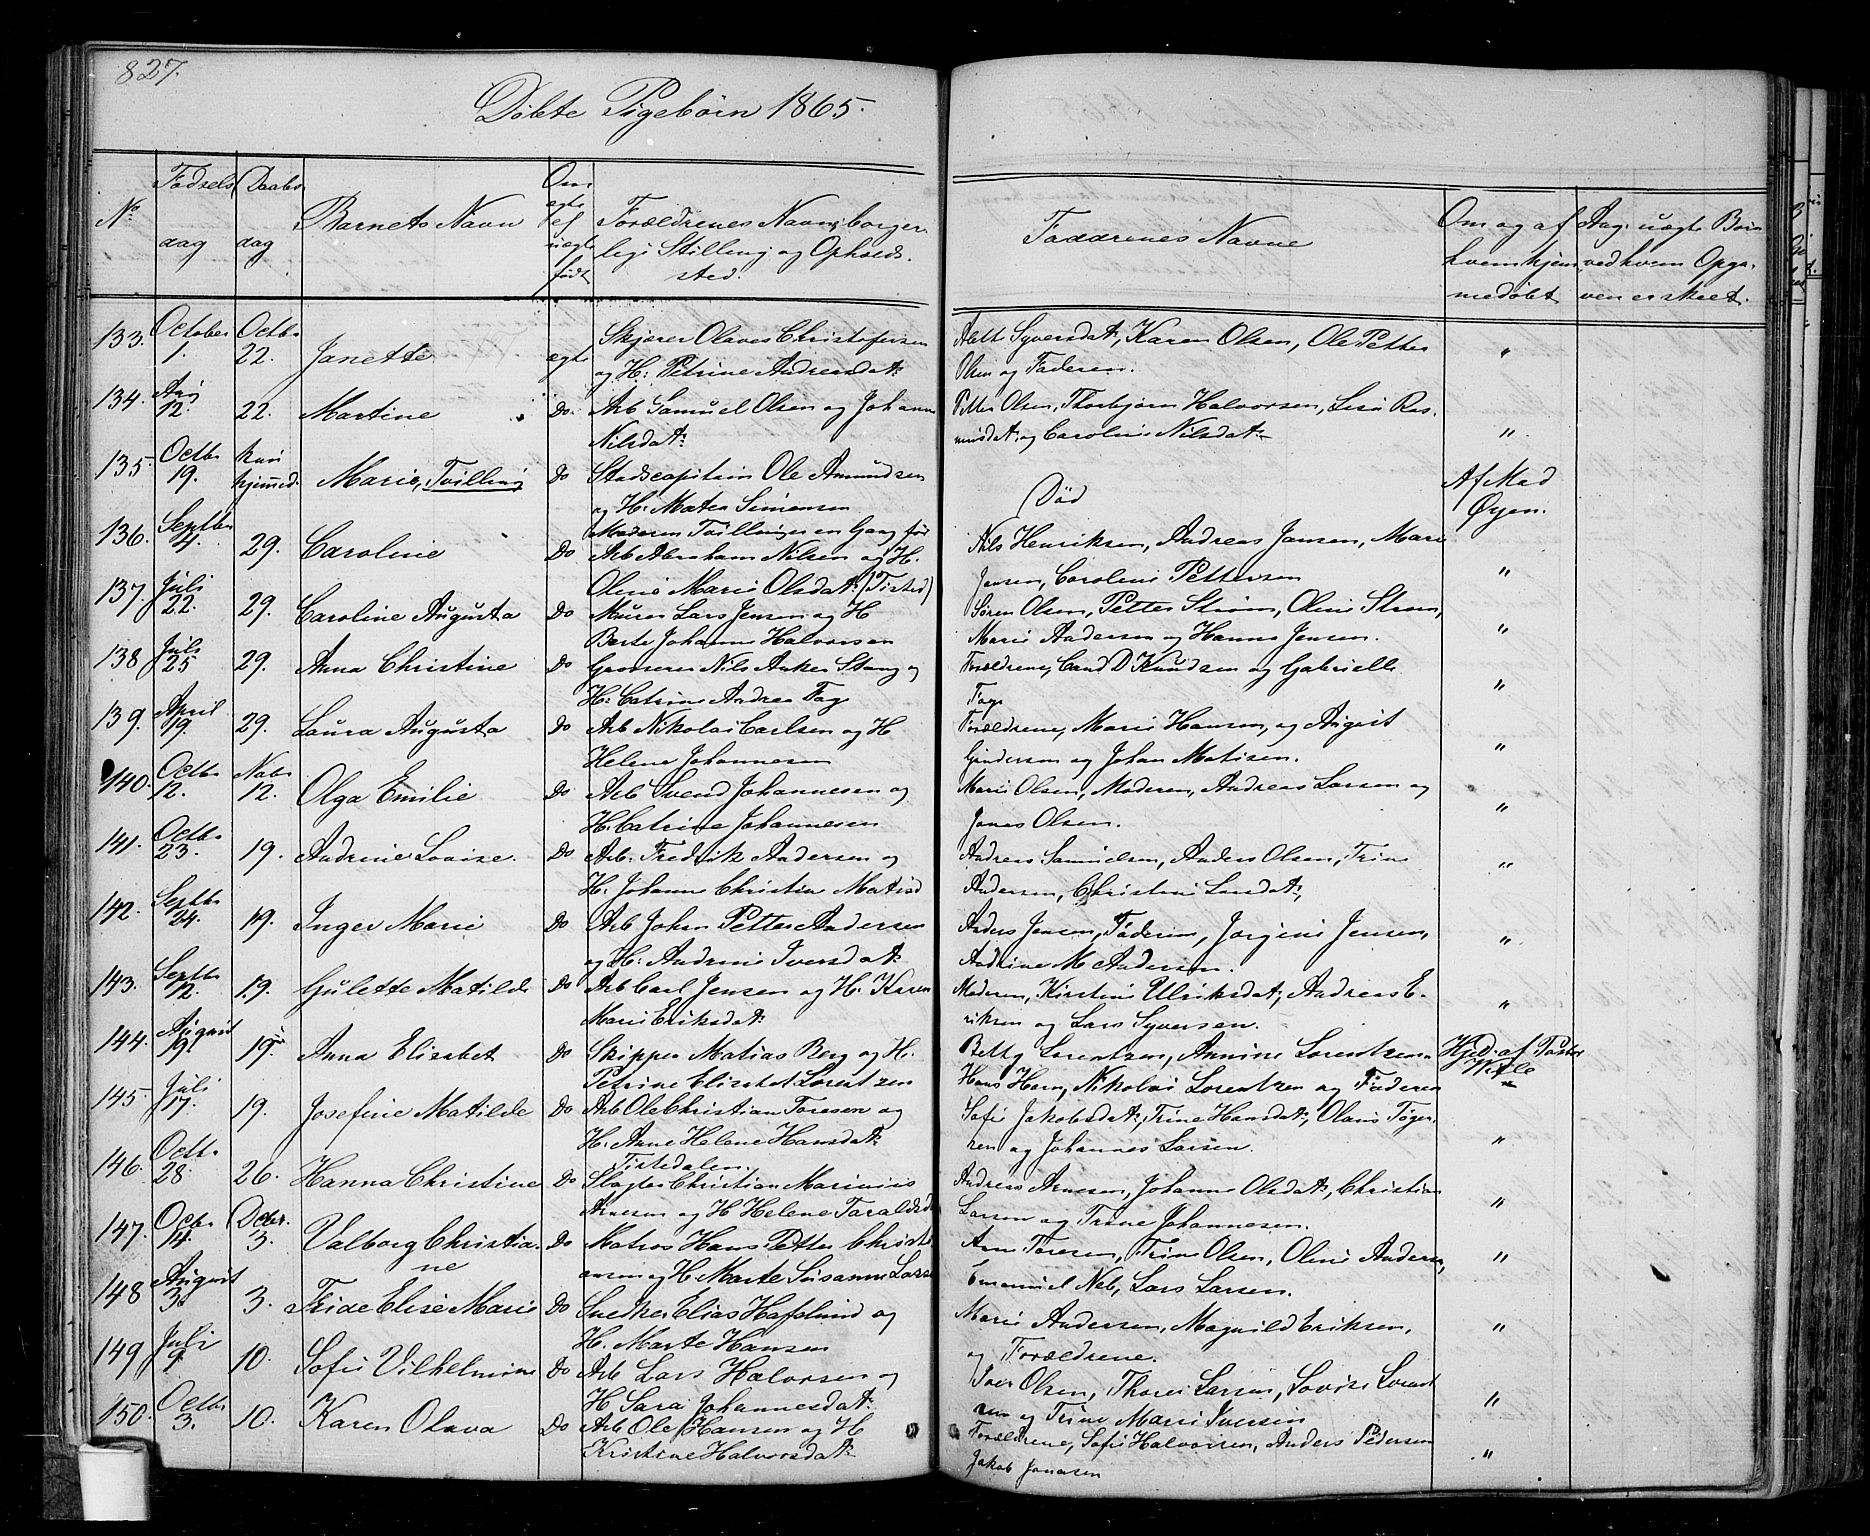 827.
Døbte Pigebørn 1865.
No Fødsels dag Daabs dag Barnets Navn Om ægte el uægte født Forældrenes Navn, borgerlige Stilling og Opholdssted. Faddrenes Navne Om og af hvem hjemmedøbt Ang. uægte Børn ved hvem Opgaven er skeet.
133. October 1. Octbr 22. Janette ægte Skjærer Olaves Christofersen Aslt Syversdat, Karen Olsen, Ole Petter "
og H: Petrine Andersdat: Olsen og Faderen.
134. Aug 12. 22. Martine Do. Arb Samuel Olsen og Johanne Petter Olsen, Thorbjørn Halvorsen, Lise Ras-
Nilsdat: musdat: og Caroline Nilsdat: "
135. Octbr 19. kun hjemmd. Marie, Tvilling Do Stadscapitain Ole Amundsen Død Af Mad Øyen.
og H: Matea Simensen
Moderen Tvillinger en Gang før
136. Septbr 4. 29. Caroline Do Arb Abraham Nilsen og H. Nils Henriksen, Andreas Jansen, Marie
Oline Marie Olsdat: (Tisted) Jansen, Caroline Pettersen "
137. Juli 22. 29. Caroline Augusta Do Murer Lars Jensen og H Søren Olsen, Petter Strøm, Oline Strøm,
Berte Johanne Halvorsen Marie Andersen og Hanna Jensen. "
138 Juli 25 29. Anna Christine Do Grosserer Nils Anker Stang og Forældrene, Cand D Knudsen og Gabrielle
H: Catrine Andrea Fag Fag "
139. April 19. 29. Laura Augusta Do Arb Nikolai Carlsen og H Forældrene, Marie Hansen, og August
Helene Johannesen Gundersen og Johan Matisen. "
140. Octbr 12. Novbr 12. Olga Emilie Do Arb Svend Johannesen og Marie Olsen, Moderen, Andreas Larsen og
H. Catrine Johannesen Jonas Olsen. "
141. Octbr 23. 19. Andrine Lovise. Do Arb. Fredrik Andersen og Andreas Samuelsen, Anders Olsen, Trine
H. Johanne Christia Matisd Andersen, Christine Larsdat:, "
142. Septbr 24. 19. Inger Marie Do Arb Johan Petter Andersen Anders Jensen, Faderen, Jørgine Jensen,
og H: Andrine Iversdat: Andrine M Andersen. "
143. Septbr 12. 19. Gulette Matilde Do Arb Carl Jensen og H. Karen Moderen, Kirstine Ulriksdat:, Andreas E-
Marie Eriksdat: riksen og Lars Syversen. "
144. August 19. 19. Anna Elisabet Do Skipper Matias Berg og H. Betty Lorentzen, Annine Lorentzen Hjed. af
Petrine Elisabet Lorentzen Hans Horn, Nikolai Lorentzen og Faderen
145. Juli 17. 19. Josefine Matilde Do Arb Ole Christian Toresen og Sofie Jakobsdat:, Trine Hansdat:, Olaus Tøger-
H. Anne Helene Hansdat: sen og Johannes Larsen. "
Tistedalen.
146. Octbr 28. 26. Hanna Christine Do Slagter Christian Marinius Andreas Arnesen, Johanne Olsdat:, Christian
Arnesen og H Helene Taraldsd Larsen og Trine Johannesen. "
147. Octbr 14. Decbr. 3. Valborg Christia- Do Matros Hans Petter Christi- Arne Toresen, Trine Olsen, Oline Andersen, "
ne ansen og H Marte Susanne Larsen Emanuel Neb, Lars Larsen.
148 August 3. 3. Fride Elise Marie Do Snedker Elias Hafslund og Marie Andersen, Magnild Eriksen, "
H. Marte Hansen og Forældrene.
149 Juli 9. 10. Sofie Vilhelmine Do Arb Lars Halvorsen og Iver Olsen, Thore Larsen, Lovise Lorent- "
H Sara Johannesdat: zen og Trine Marie Iversen
150. Octbr 3. 10. Karen Olava Do Arb Ole Hansen og H Forældrene, Sofie Halvorsen, Anders Pedersen "
Kristine Halvorsdat: Jakob Jonasen